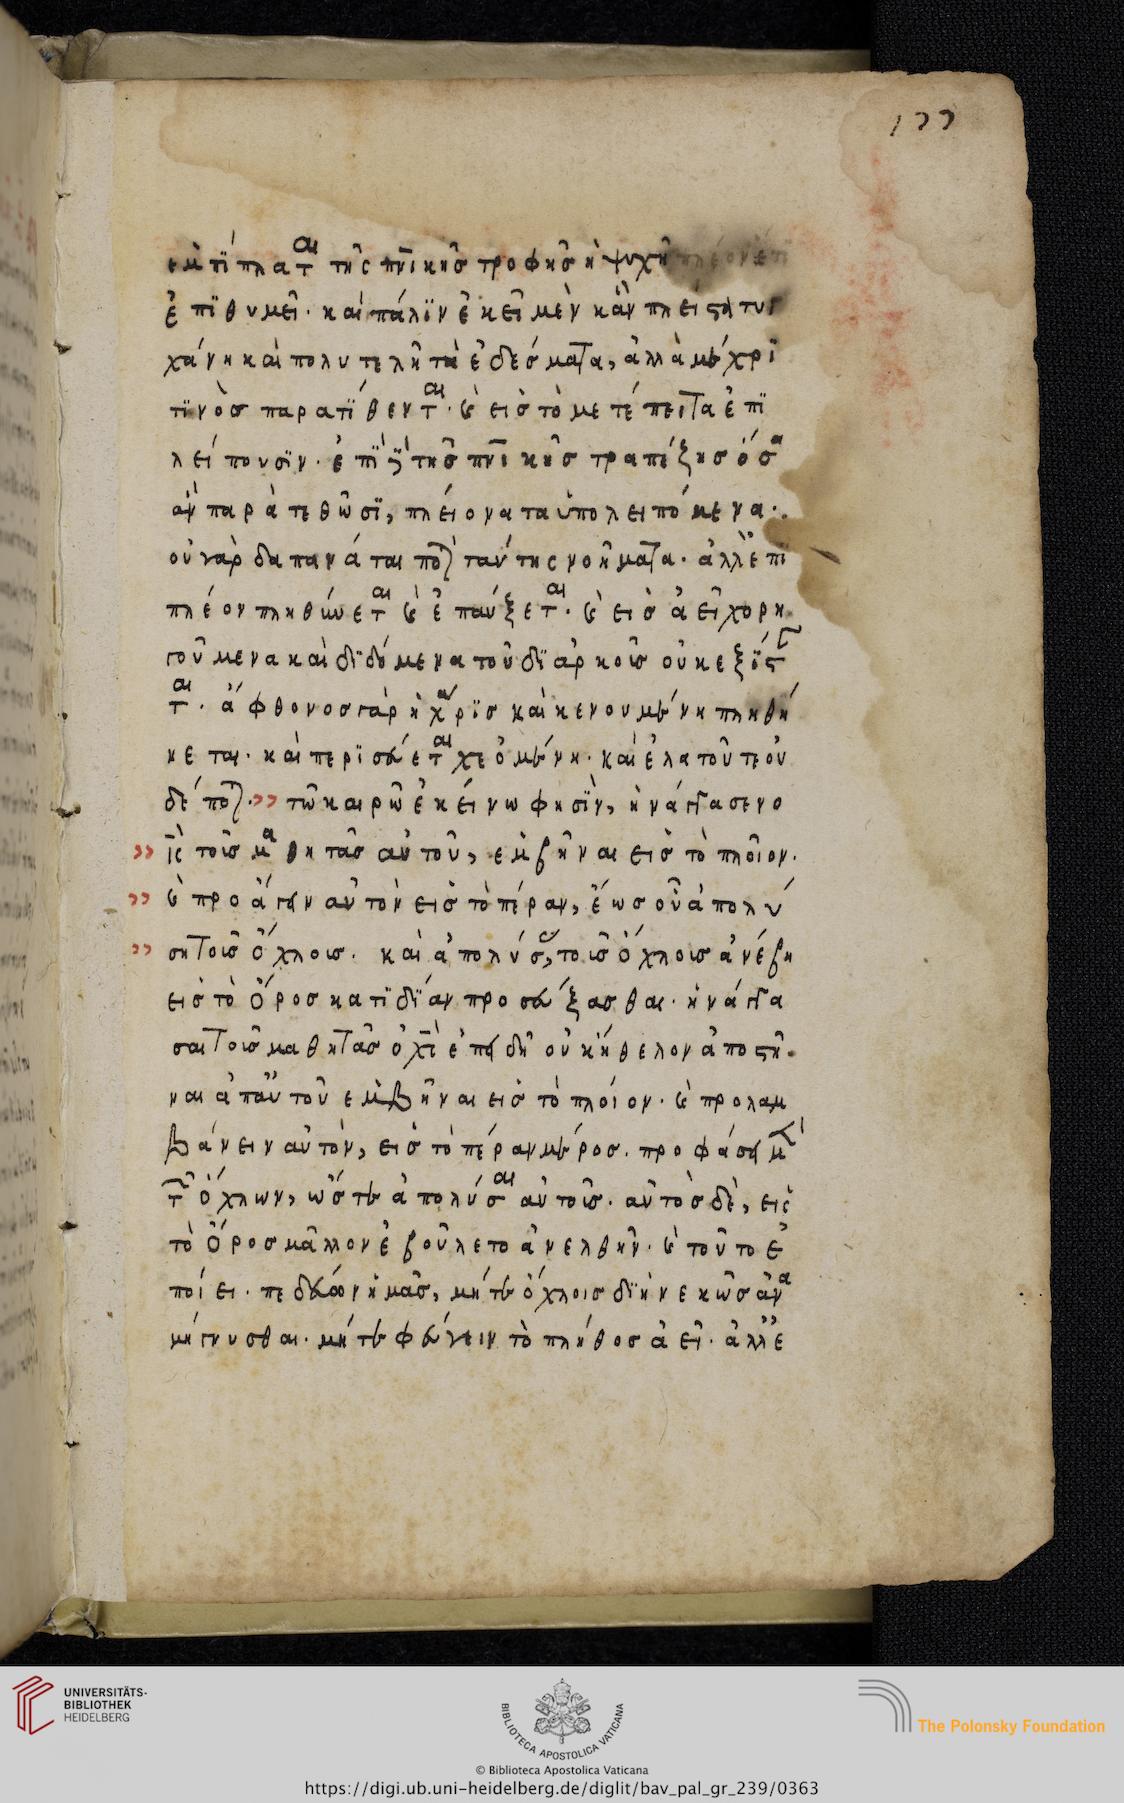 177
ἐμπίπλατ(αι) τῆς πνικῆς τροφῆς ἡ ψυχὴ πλέον ἔτι
ἐπιθυμεῖ· καὶ πάλϊν ἐκεῖ μὲν κἂν πλεῖστα τυγ
χάνη καὶ πολυτελῆ τὰ ἐδέσματα, ἀλλὰ μέχρι
τϊνὸς παρατίθεντ(αι)· καὶ εἰς τὸ μετέπειτα ἐπϊ
λείπουσϊν· ἐπὶ δὲ τῆς πνικῆς τραπέζης ὅσα
ἂν παρατεθῶσϊ, πλείονα τὰ ὑπολειπόμενα·
οὐ γὰρ δαπανάται ποτὲ ταύτης νοήματα· ἀλλ' ἐπϊ
πλέον πληθύνετ(αι) καὶ ἐπαύξετ(αι)· καὶ εἰς ἀεὶ χορη
γούμενα καὶ δϊδόμενα τοῦ δϊαρκοῦς οὐκ ἐξίστ
τ(αι)· ἄφθονος γὰρ ἡ χάρϊς καὶ κενουμένη πληθύ
νεται· καὶ περϊσεύετ(αι) χεομένη· καὶ ἐλατοῦτε οὐ
δέποτε· τῶ καιρῶ ἐκείνω φησϊν, ἠνάγκασεν ὁ
ις τοὺς μαθητὰς αὐτοῦ, ἐμβῆναι εἰς τὸ πλοῖον·
καὶ προάγειν αὐτὸν εἰς τὸ πέραν, ἕως οὗ ἀπολύ
ση τοὺς ὄχλους· καὶ ἀπολύσας τοὺς ὄχλους ἀνέβη
εἰς τὸ ὄρος κατϊδϊαν προσεύξασθαι· ἠνάγκα
σαι τοὺς μαθητὰς ὁ χς ἐπειδὴ οὐκ ἤθελον ἀποστῆ
ναι ἀπ' αὐτοῦ ἐμβῆναι εἰς τὸ πλοίον· καὶ προλαμ
βάνειν αὐτὸν, εἰς τὸ πέραν μέρος· προφάσει μὲν
τῶν ὄχλων, ὥστε ἀπολύσ(αι) αὐτοῦς· αὐτὸς δὲ, εἰς
τὸ ὄρος μᾶλλον ἐβούλετο ἀνελθῆν· καὶ τοῦτο ἐ
ποίει· πεδεύων ἡμᾶς, μήτε ὄχλοις δϊηνεκῶς ἀνα
μήγνυσθαι· μήτε φεύγειν τὸ πλῆθος ἀεί· ἀλλ' ἑ
UNIVERSITÄTS-
BIBLIOTHEK
HEIDELBERG
BIBLIOTECA APOSTOLICA VATICANA
The Polonsky Foundation
© Biblioteca Apostolica Vaticana
https://digi.ub.uni-heidelberg.de/diglit/bav_pal_gr_239/0363